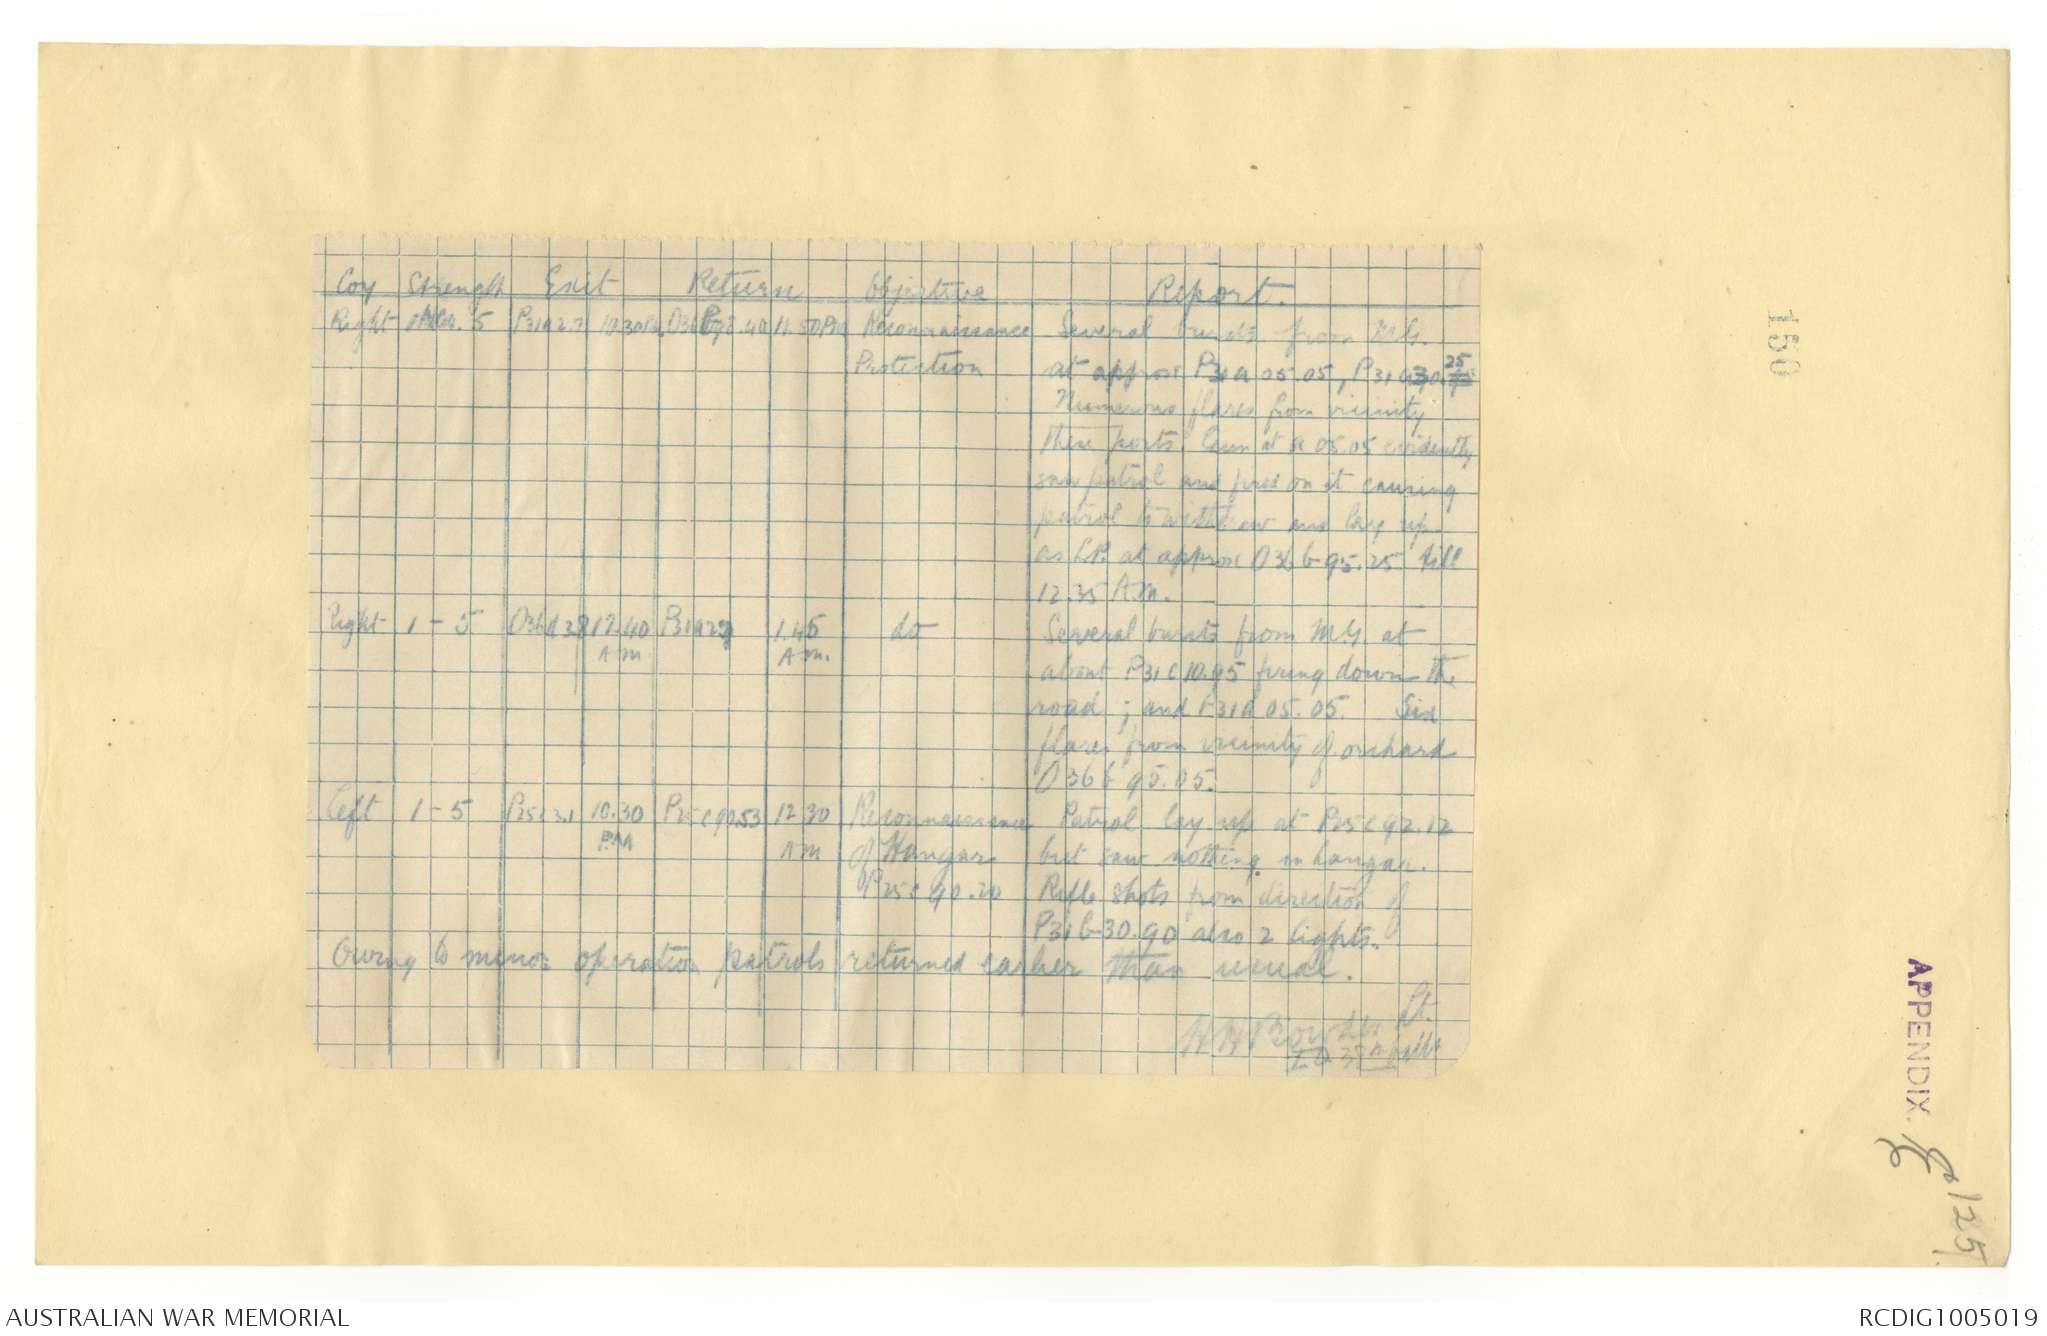 Coy Strength Exit Return Objective Report.
Right 5 P31a2.7 10.30PM 11.50PM Reconnaissance Several bursts from M.G.
Protection at approx P31a 05.05, P31 25
Numerous flares from vicinity
these posts. Gun at a 05.05 evidently
saw patrol and fired on it causing
patrol to withdraw and lay up
as L.P. at approx O36b 95.25 till
12.35 A.M.
Right 1-5 12.40 A.M. P31a 1.45 A.M. do Several bursts from M.G. at
about P31c 10.95 firing down the
road ; and P31a 05.05. Six
flares from vicinity of orchard
O36b 95.05.
Left 1-5 P25c3.1 10.30 PM P25c 90.53 12.30 AM Reconnaissance Patrol lay up at P25c 92.12
of Hangar but saw nothing in hangar.
P25c 90.20 Rifle shots from direction of
P31b 30.90 also 2 lights.
Owing to minor operation patrols returned earlier than usual.
Lt.
I.O. 38th Battn
150
APPENDIX.
125
AUSTRALIAN WAR MEMORIAL
RCDIG1005019